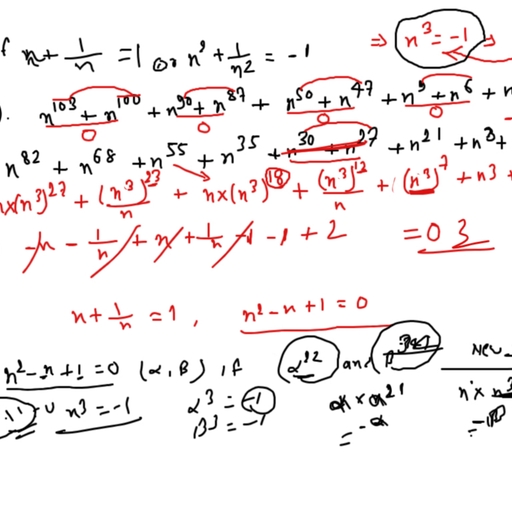 f n + 1/n = 1 or n² + 1/n2 = -1 ⇒ n³ = -1
n¹⁰³ + n¹⁰⁰ + n⁹⁰ + n⁸⁷ + n⁵⁰ + n⁴⁷ + n⁹ + n⁶ +
0 0 0 0
n⁸² + n⁶⁸ + n⁵⁵ + n³⁵ + n³⁰ + n²⁷ + n²¹ + n³ +
n×(n³)²⁷ + (n³)²³/n + n×(n³)¹⁸ + (n³)¹²/n + (n³)⁷ + n3 +
-n - 1/n + n + 1/n - 1 - 1 + 2 = 0 3
n + 1/n = 1, n² - n + 1 = 0
n² - n + 1 = 0 (α, β) if α²² and New
n³ = -1 α³ = -1 α × α²¹
β³ = -1 = -α